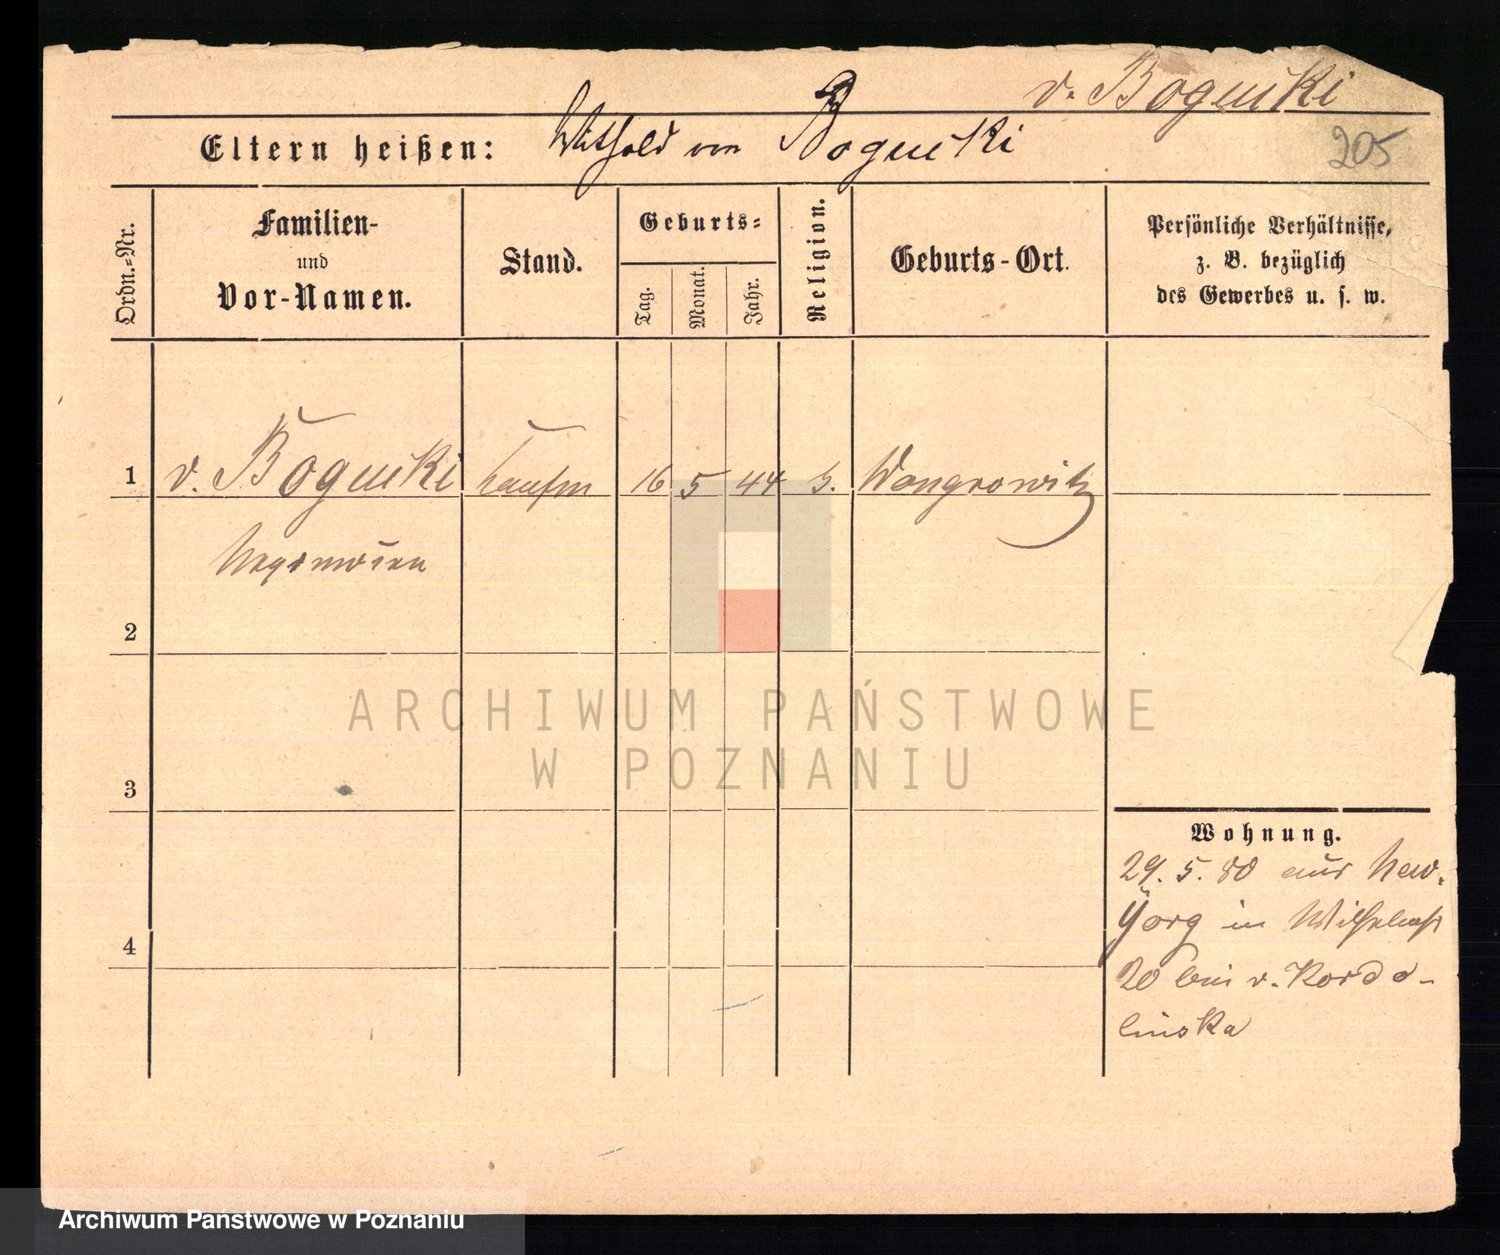 v. Bogucki
205
Eltern heißen: Withold von Bogucki
Ordn.-Nr.
Familien-
und
Vor-Namen.
Stand.
Geburts-
Tag.
Monat.
Jahr.
Religion.
Geburts-Ort.
Persönliche Verhältnisse,
z. B. bezüglich
des Gewerbes u. s. w.
1 v. Bogucki Kaufm 16 5 44 Wongrowitz
2
3
4
Wohnung.
29. 5. 80 aus New-
Yorg in Wilhelmst
20 bei v. Kordo-
linska
ARCHIWUM PAŃSTWOWE
W POZNANIU
Archiwum Państwowe w Poznaniu